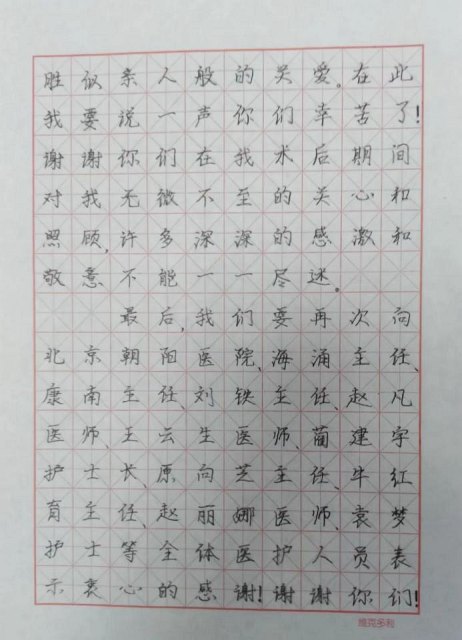 胜似亲人般的关爱。在此
我要说一声你们辛苦了!
谢谢你们在我术后期间
对我无微不至的关心和
照顾,许多深深的感激和
敬意不能一一尽述。
最后,我们要再次向
北京朝阳医院、海涌主任、
康南主任、刘铁主任、赵凡
医师、王云生医师、蔺建宇
护士长、原向芝主任、牛红
育主任、赵丽娜医师、袁梦
护士等全体医护人员表
示衷心的感谢!谢谢你们!
维克多利